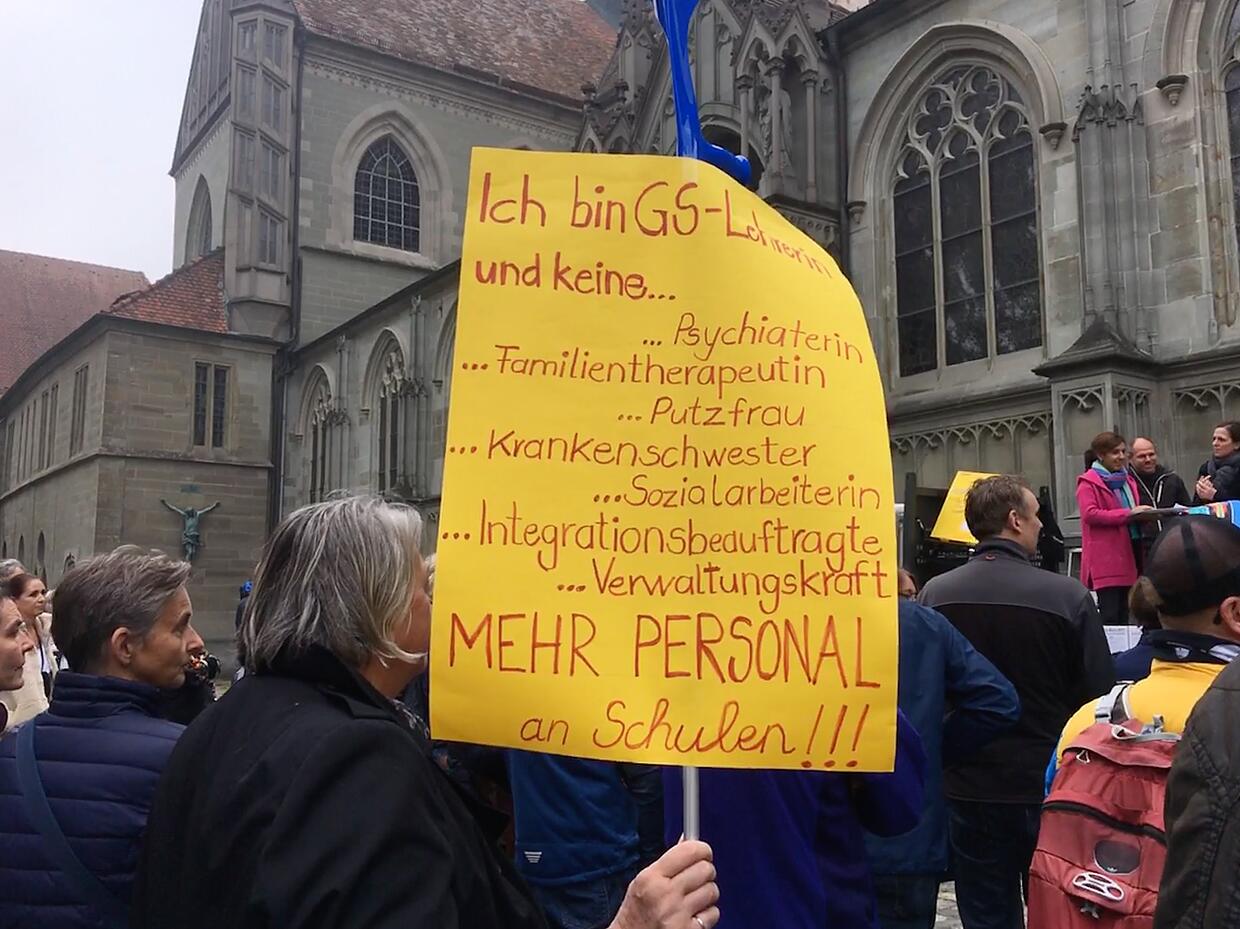 Ich bin GS-Lehrerin
und keine...
... Psychiaterin
... Familientherapeutin
... Putzfrau
... Krankenschwester
... Sozialarbeiterin
... Integrationsbeauftragte
... Verwaltungskraft
MEHR PERSONAL
an Schulen!!!